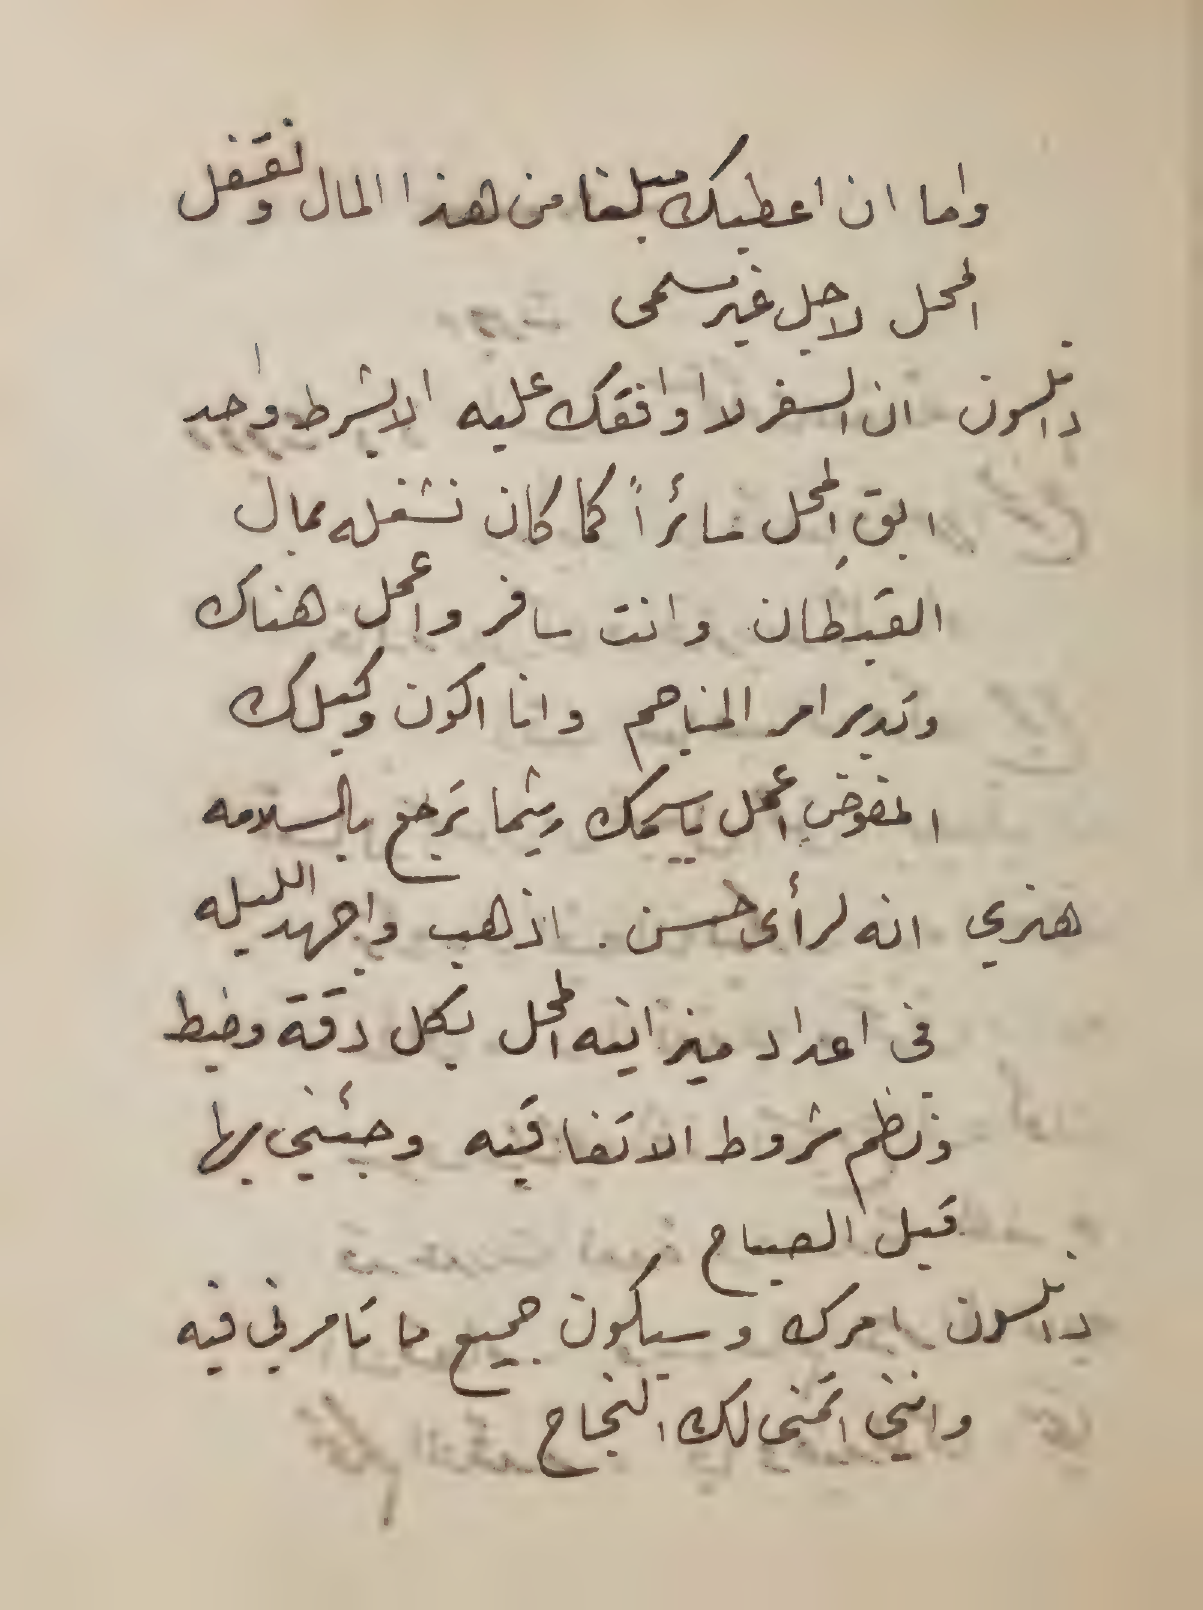 واما ان اعطيك مبلغا من هذا المال ونقفل
المحل لاجل غير مسمى
دانلسون ان السفر لا اوافقك عليه الا بشرط واحد
ابقِ المحل سائراً كما كان نشغله بمال
القبطان وانت سافر واعمل هناك
وتدبر امر المناجم وانا اكون وكيلك
المفوض اعمل باسمك ريثما ترجع بالسلامه
هنري انه لرأى حسن. اذهب واجهد الليله
فى اعداد ميزانيه المحل بكل دقة وضبط
ونظم شروط الاتفاقيه وجئني بها
قبل الصباح
دانلسون امرك وسيكون جميع ما تامرني فيه
وانني اتمنى لك النجاح